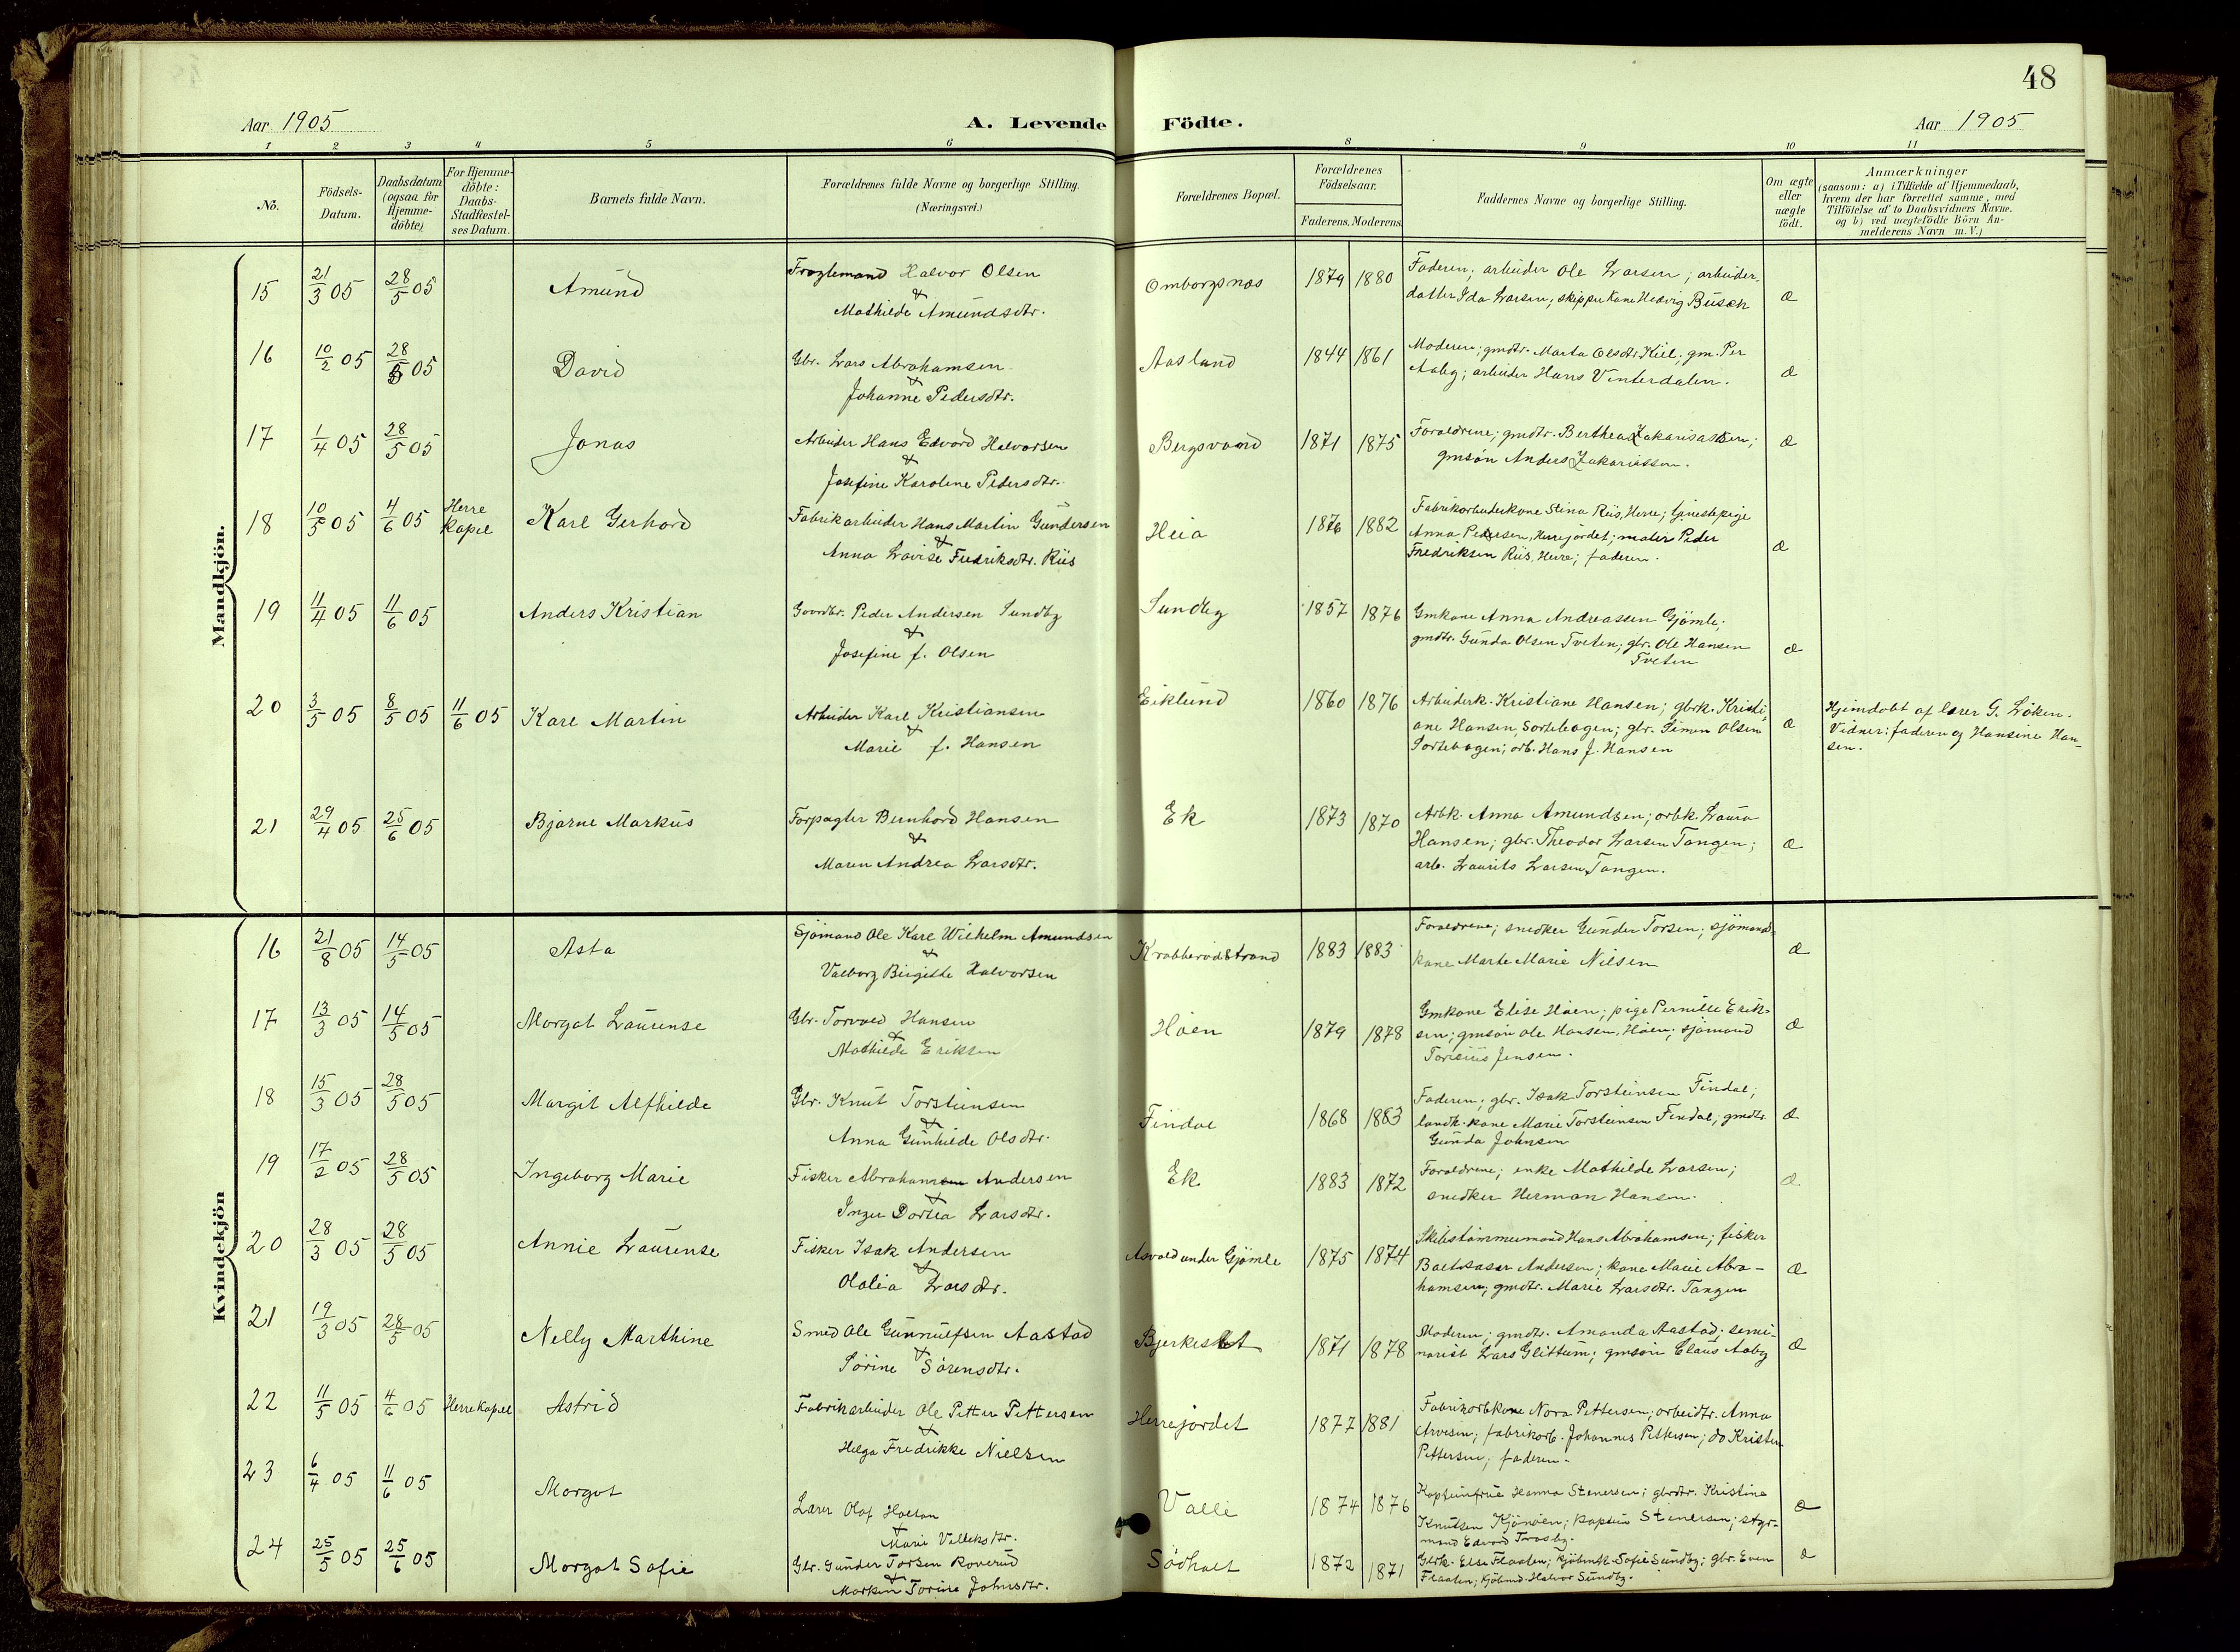 48
Aar 1905
A. Levende Födte.
Aar 1905
1 2 3 4 5 6 8 9 10 11
No.
Födsels-
Datum.
Daabsdatum
(ogsaa for
Hjemme-
döbte)
For Hjemme-
döbte:
Daabs-
Stadfæstel-
ses Datum.
Barnets fulde Navn.
Forældrenes fulde Navne og borgerlige Stilling.
(Næringsvei.)
Forældrenes Bopæl.
Forældrenes
Födselsaar.
Faderens. Moderens.
Faddernes Navne og borgerlige Stilling.
Om ægte
eller
uægte
födt.
Anmærkninger
(saasom: a) i Tilfælde af Hjemmedaab,
hvem der har forrettet samme, med
Tilföielse af to Daabsvidners Navne.
og b) ved uægtefödte Börn An-
melderens Navn m. V.)
Mandkjön.
15 21/3 05 28/5 05 Amund
Halvor Olsen
&
Mathilde Amundsdtr.
Omborgsnæs 1879 1880
Faderen; arbeider Ole Larsen; arbeider-
datter Ida Larsen; skipperkone Hedvig Busch
æ
16 10/2 05 28/5 05 David
Gbr. Lars Abrahamsen
&
Johanne Pedersdtr.
Aaslund 1844 1861
Moderen; gmdtr. Marta Olsdtr. Kiil; gm. Per
Aaby; arbeider Hans Vinterdalen.
æ
17 1/4 05 28/5 05 Jonas
Arbeider Hans Edvard Halvorsen
&
Josefine Karoline Pedersdtr.
Bergsvand 1871 1875
Forældrene; gmdtr. Berthea Zakariassen;
gmsön Anders Zakariassen.
æ
18 10/5 05 4/6 05 Herre
Kapel
Karl Gerhard
Fabrikarbeider Hans Martin Gundersen
&
Anna Lovise Fredriksdtr. Riis
Heia 1876 1882
Fabrikarbeiderkone Stina Riis, Herre; tjenestepige
Anna Pedersen, Herrejordet; maler Peder
Fredriksen Riis, Herre; faderen.
æ
19 11/4 05 11/6 05 Anders Kristian
Gaardbr. Peder Andersen Sundby
&
Josefine f. Olsen
Sundby 1857 1876
Gmkone Anna Andreassen Gjömle;
gmdtr. Gunda Olsen Tveten; gbr. Ole Hansen
Tveten
æ
20 3/5 05 8/5 05 11/6 05 Karl Martin
Arbeider Karl Kristiansen
&
Marie f. Hansen
Eiklund 1860 1876
Arbeiderk. Kristiane Hansen; gbrk. Kristi-
ane Hansen, Sortebogen; gbr. Simen Olsen
Sortebogen; arb. Hans J. Hansen
æ
Hjemdöbt af lærer G. Löken.
Vidner: faderen og Hansine Han-
sen.
21 29/4 05 25/6 05 Bjarne Markus
Forpagter Bernhard Hansen
&
Maren Andrea Larsdtr.
Ek 1873 1870
Arbk. Anna Amundsen; arbk. Laura
Hansen; gbr. Theodor Larsen Tangen;
arb. Laurits Larsen, Tangen.
æ
Kvindekjön
16 21/8 05 14/5 05 Asta
Sjömand Ole Karl Wilhelm Amundsen
&
Valborg Birgitte Halvorsen
Krabberödstrand 1883 1883
Forældrene; snedker Gunder Torsen; sjömands-
kone Marte Marie Nilsen
æ
17 13/3 05 14/5 05 Margot Laurense
Gbr. Torvald Hansen
&
Mathilde Eriksen
Håen 1879 1878
Gmkone Elise Håen; pige Pernille Erik-
sen; gmsön Ole Hansen, Håen; sjömand
Jensen.
æ
18 15/3 05 28/5 05 Margit Alfhilde
Gbr. Knut Torsteinsen
&
Anna Gunhilde Olsdtr.
Findal 1868 1883
Faderen; gbr. Isak Torsteinsen Findal;
landh. kone Marie Torsteinsen Findal; gmdtr.
Gunda Johnsen
æ
19 17/2 05 28/5 05 Ingeborg Marie
Fisker Abraham Andersen
&
Inger Dortea Larsdtr.
Ek 1883 1872
Forældrene; enke Mathilde Larsen;
snedker Herman Hansen.
æ
20 28/3 05 28/5 05 Annie Laurense
Fisker Isak Andersen
&
Olalia Larsdtr.
Asvald under Gjömle 1875 1874
Skibstömmermand Hans Abrahamsen; fisker
Baltsasar Andersen; kone Marie Abra-
hamsen; gmdtr. Marie Larsdtr. Tangen
æ
21 19/3 05 28/5 05 Nelly Marthine
Smed Ole Gunnulfsen Aastad
&
Sörine Sörensdtr.
Bjerkeslet 1871 1878
Moderen; gmdtr. Amanda Aastad; semi-
narist Lars Glittum; gmsön Claus Aaby
æ
22 11/5 05 4/6 05 Herre Kapel Astrid
Fabrikarbeider Ole Petter Pettersen
&
Helga Fredrikke Nielsen
Herrejordet 1877 1881
Fabrikarbkone Nora Pettersen; arbeidtr. Anna
Arvesen; fabrikarb. Johannes Pettersen; do Kristen
Pettersen; faderen.
23 6/4 05 11/6 05 Margot
Lærer Olaf Holtan
&
Marie Velleksdtr.
Valle 1874 1876
Kapteinfrue Hanna Stenersen; gbrdtr. Kristine
Knutsen Kjönöen; kaptein Stenersen; styr-
mand Edvard Trosby.
æ
24 25/5 05 25/6 05 Margot Sofie
Gbr. Gunder Torsen Roverud
&
Marken Torine Johnsdtr.
Södholt 1872 1871
Gbrk. Else Flaaten; kjöbmk. Sofie Sundby; gbr. Even
Flaaten; kjöbmd. Halvor Sundby.
æ